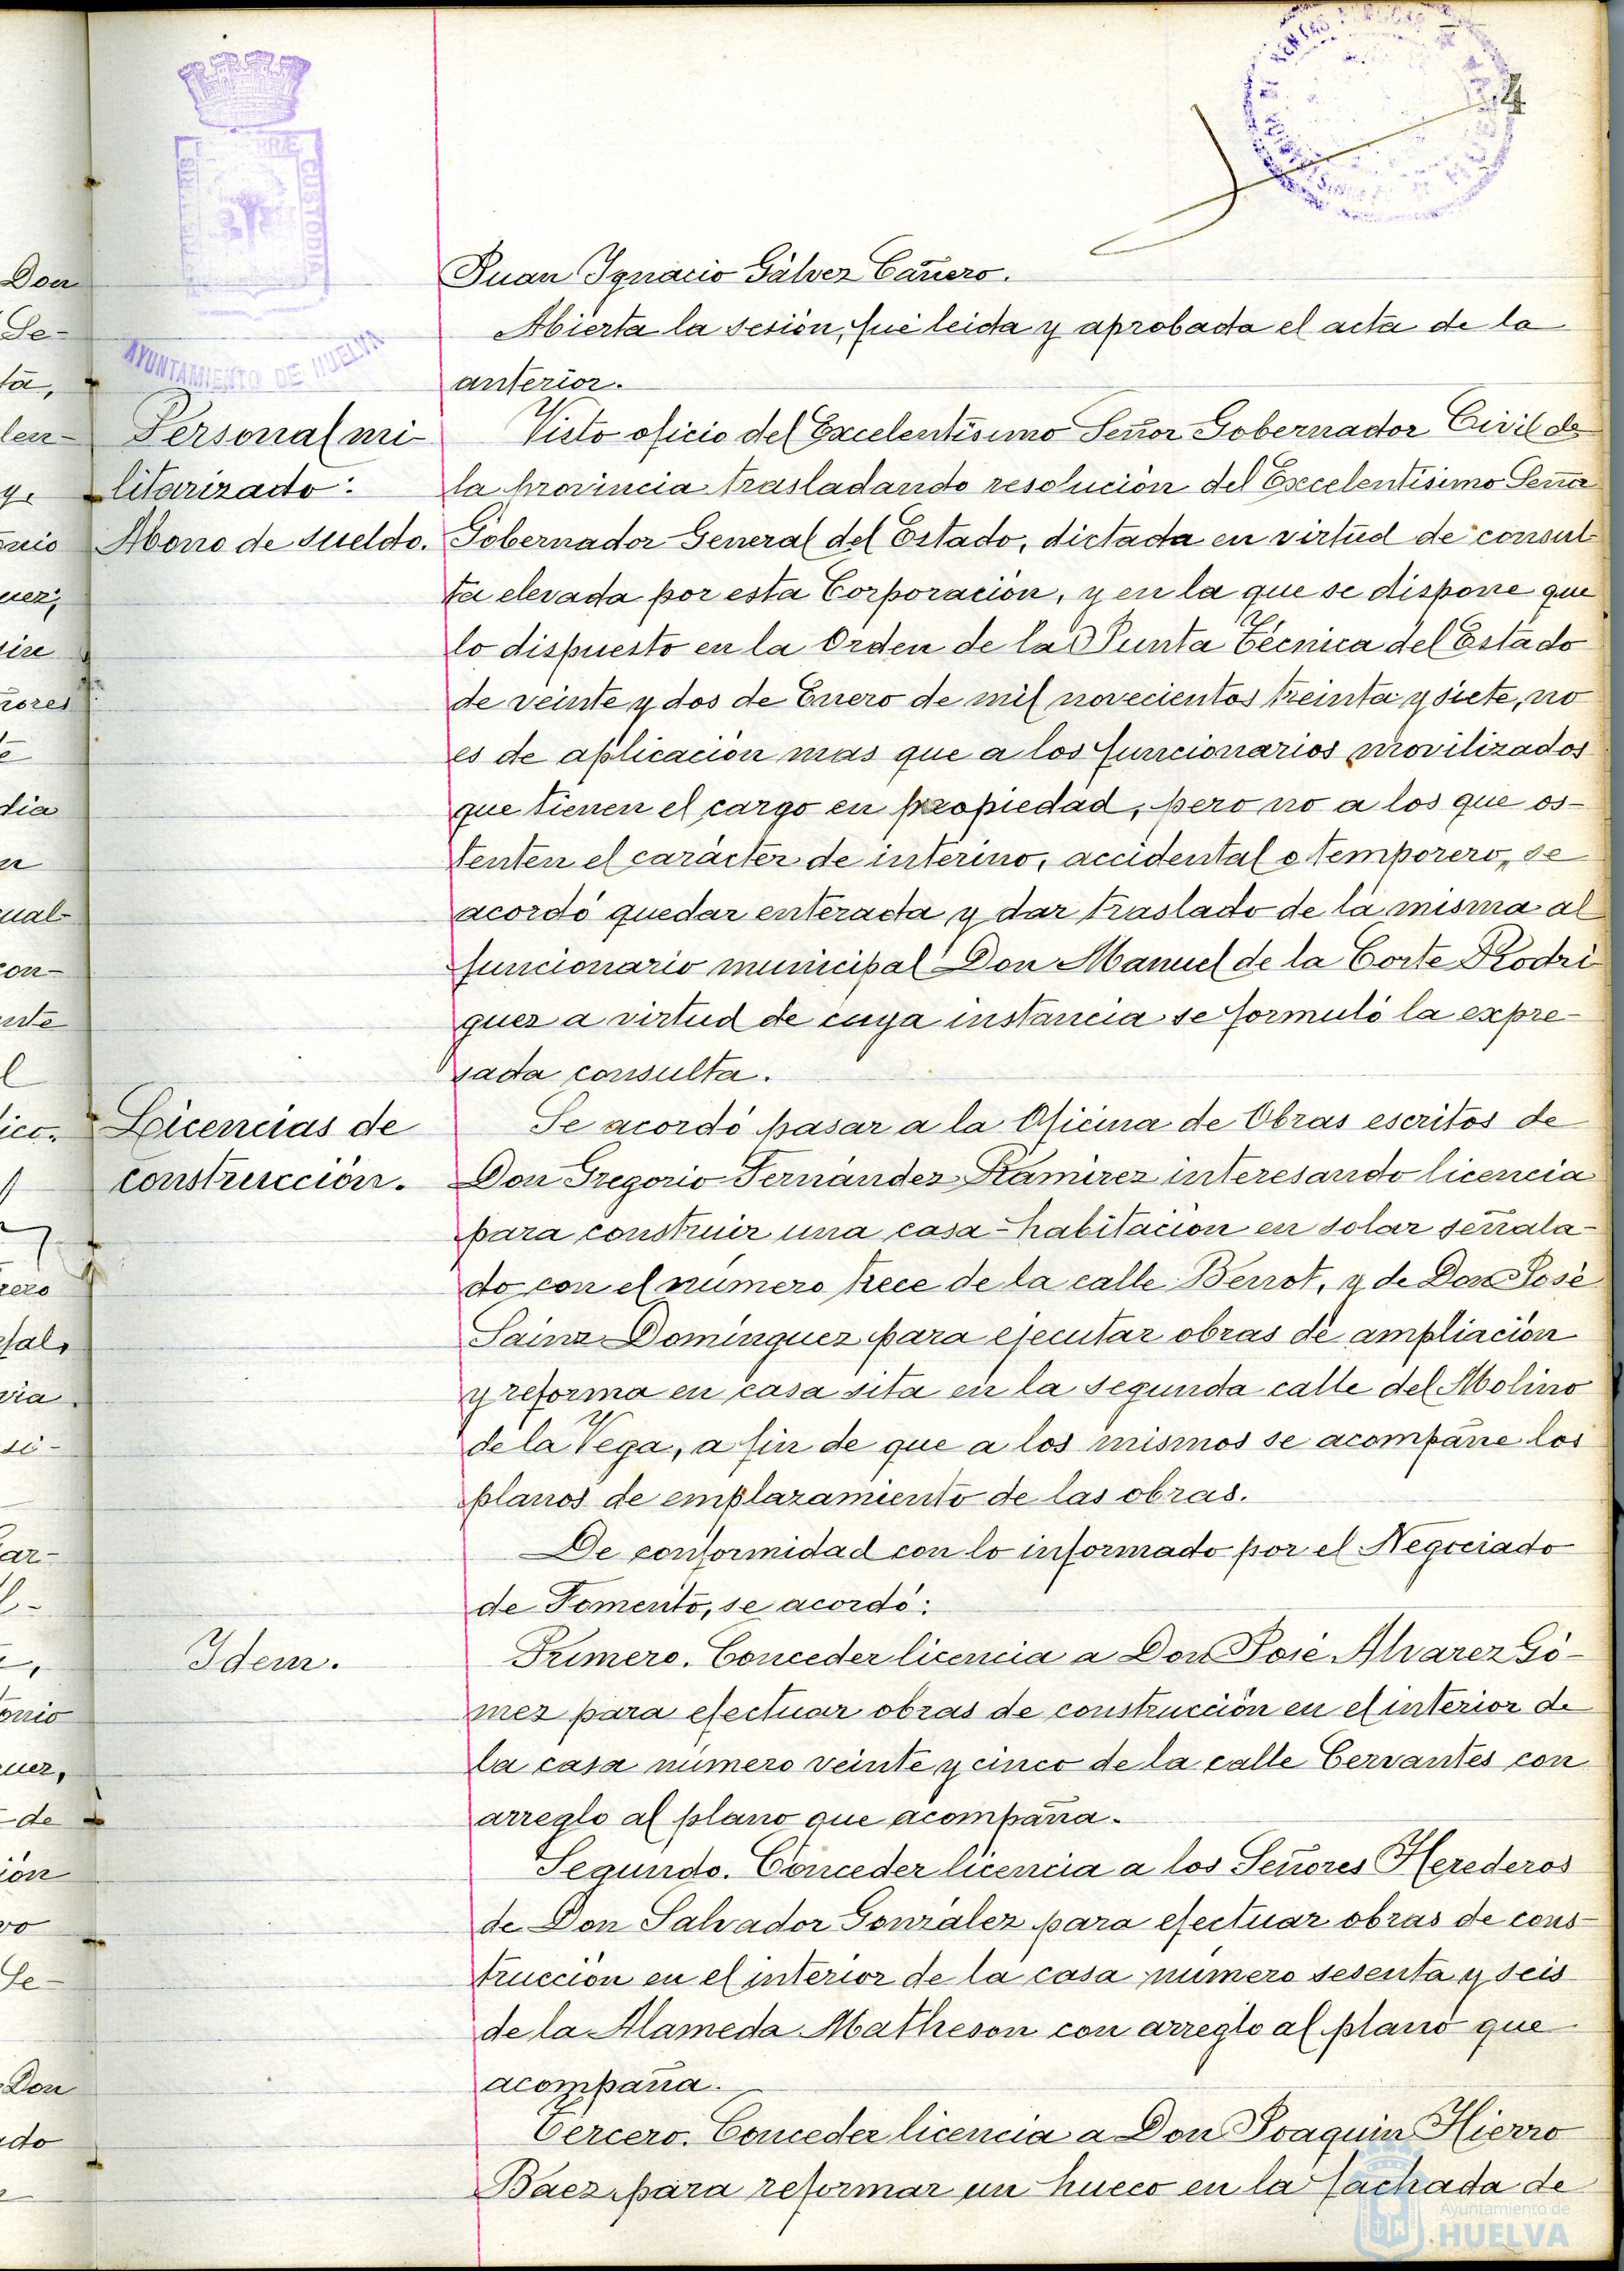 24
AYUNTAMIENTO DE HUELVA
CUSTODIA
Juan Ignacio Gálvez Cañero.
Abierta la sesión, fué leida y aprobada el acta de la
anterior.
Personal mi-
litarizado:
Abono de sueldo.
Visto oficio del Excelentísimo Señor Gobernador Civil de
la provincia trasladando resolución del Excelentísimo Señor
Gobernador General del Estado, dictada en virtud de consul-
ta elevada por esta Corporación, y en la que se dispone que
lo dispuesto en la Orden de la Junta Técnica del Estado
de veinte y dos de Enero de mil novecientos treinta y siete, no
es de aplicación mas que a los funcionarios movilizados
que tienen el cargo en propiedad, pero no a los que os-
tenten el carácter de interino, accidental o temporero, se
acordó quedar enterada y dar traslado de la misma al
funcionario municipal Don Manuel de la Corte Rodrí
guez a virtud de cuya instancia se formuló la expre-
sada consulta.
Licencias de
construcción.
Se acordó pasar a la Oficina de Obras escritos de
Don Gregorio Fernández Ramírez interesando licencia
para construir una casa-habitación en solar señala-
do con el número trece de la calle Berrot, y de Don José
Sainz Domínguez para ejecutar obras de ampliación
y reforma en casa sita en la segunda calle del Molino
de la Vega, a fin de que a los mismos se acompañe los
planos de emplazamiento de las obras.
De conformidad con lo informado por el Negociado
de Fomento, se acordó:
Idem.
Primero. Conceder licencia a Don José Alvarez Gó-
mez para efectuar obras de construcción en el interior de
la casa número veinte y cinco de la calle Cervantes con
arreglo al plano que acompaña.
Segundo. Conceder licencia a los Señores Herederos
de Don Salvador González para efectuar obras de cons-
trucción en el interior de la casa número sesenta y seis
de la Alameda Matheson con arreglo al plano que
acompaña.
Tercero. Conceder licencia a Don Joaquin Hierro
Baez para reformar un hueco en la fachada de
Ayuntamiento de
HUELVA